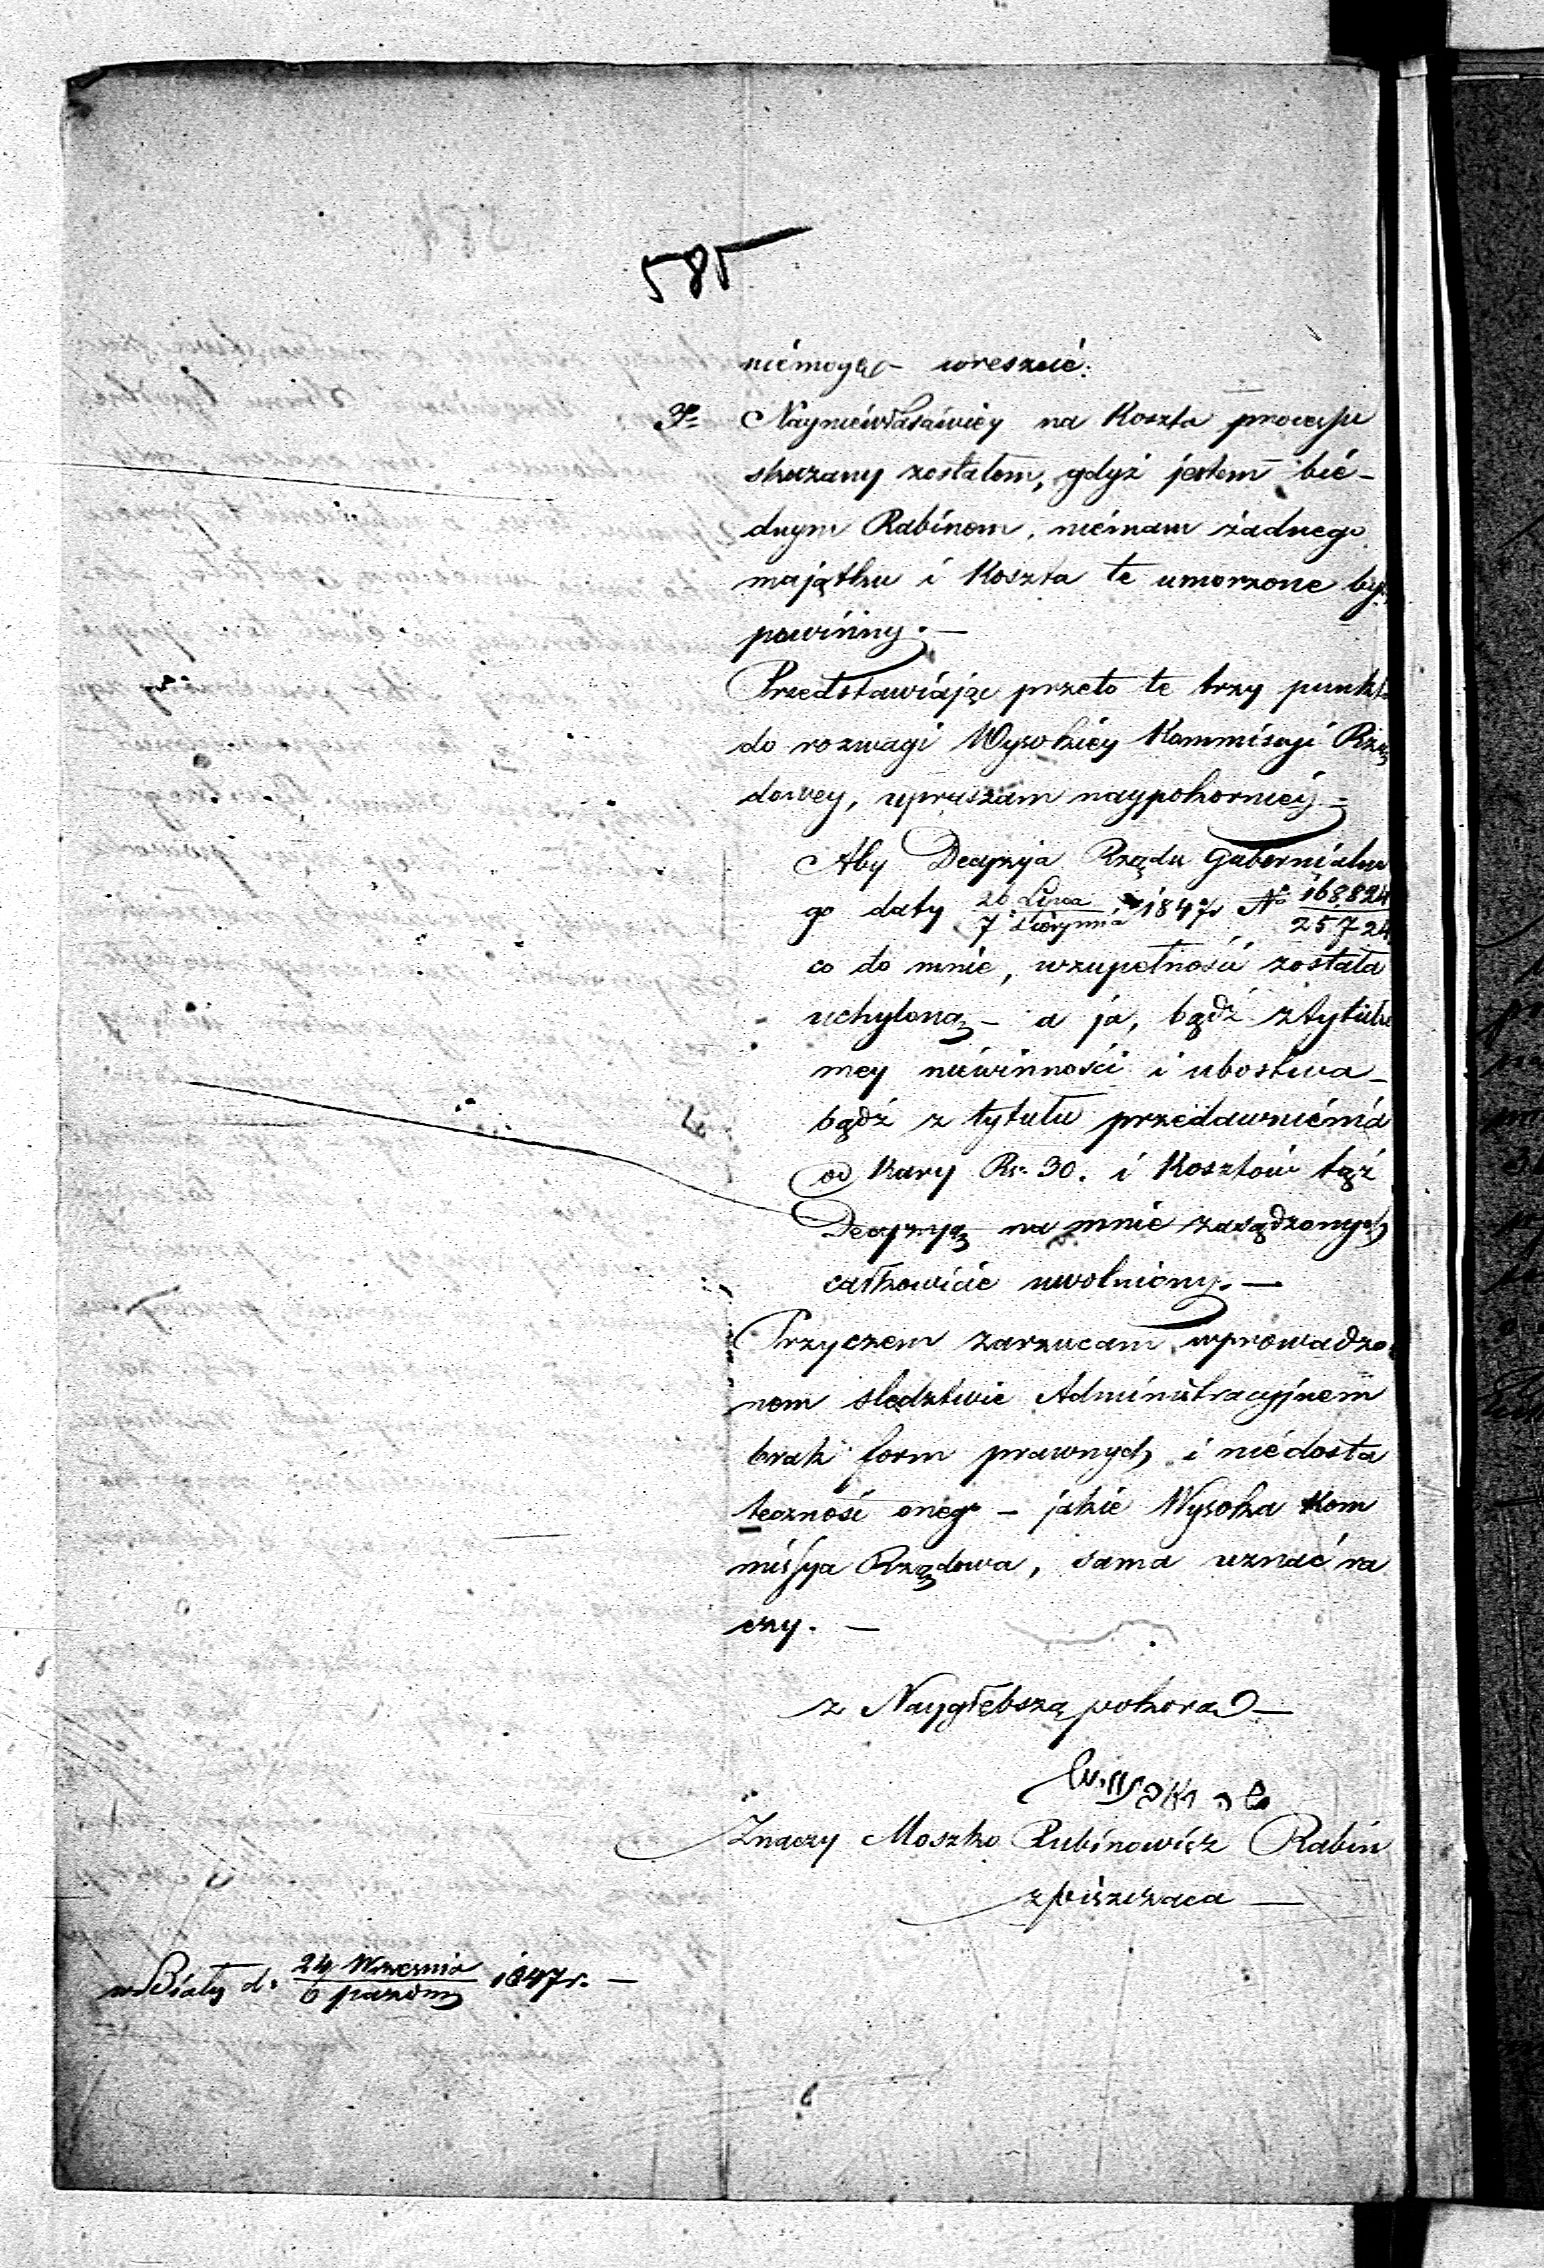 585
niémogąc wreszcié:
3º Nayniéwłaściwiéy na Koszta processu
skazany zostałem, gdyż jestem bié-
dnym Rabinem, niémam żadnego
majątku i Koszta te umorzone być
powinny. —
Przedstawiając przeto te trzy punkta
do rozwagi Wysokiéy Kommissyi Rzą
dowey, upraszam naypokorniéy —
Aby Decyzyja Rządu Gubernialne
go daty 26 Lipca / 7 Sierpnia 1847r Nº 168,824 / 25724
co do mnie, wzupełności została
uchyloną — a ja, bądź z tytułu
mey niéwinności i ubóstwa —
bądź z tytułu przedawniénia
od Kary Rs. 30. i Kosztów tąż
Decyzyą na mnie zasądzonych
całkowicie uwolniony. —
Przyczem zarzucam wprowadzo
nem śledztwie Administracyjnem
brak form prawnych i niédosta
teczność onego — jakie Wysoka Kom
missya Rządowa, sama uznać ra
czy. —
z Naygłębszą pokorą —
Znaczy Moszko Rubinowicz Rabin
z Piszczaca —
w Biały d. 24 Września / 6 Paździer 1847r. —